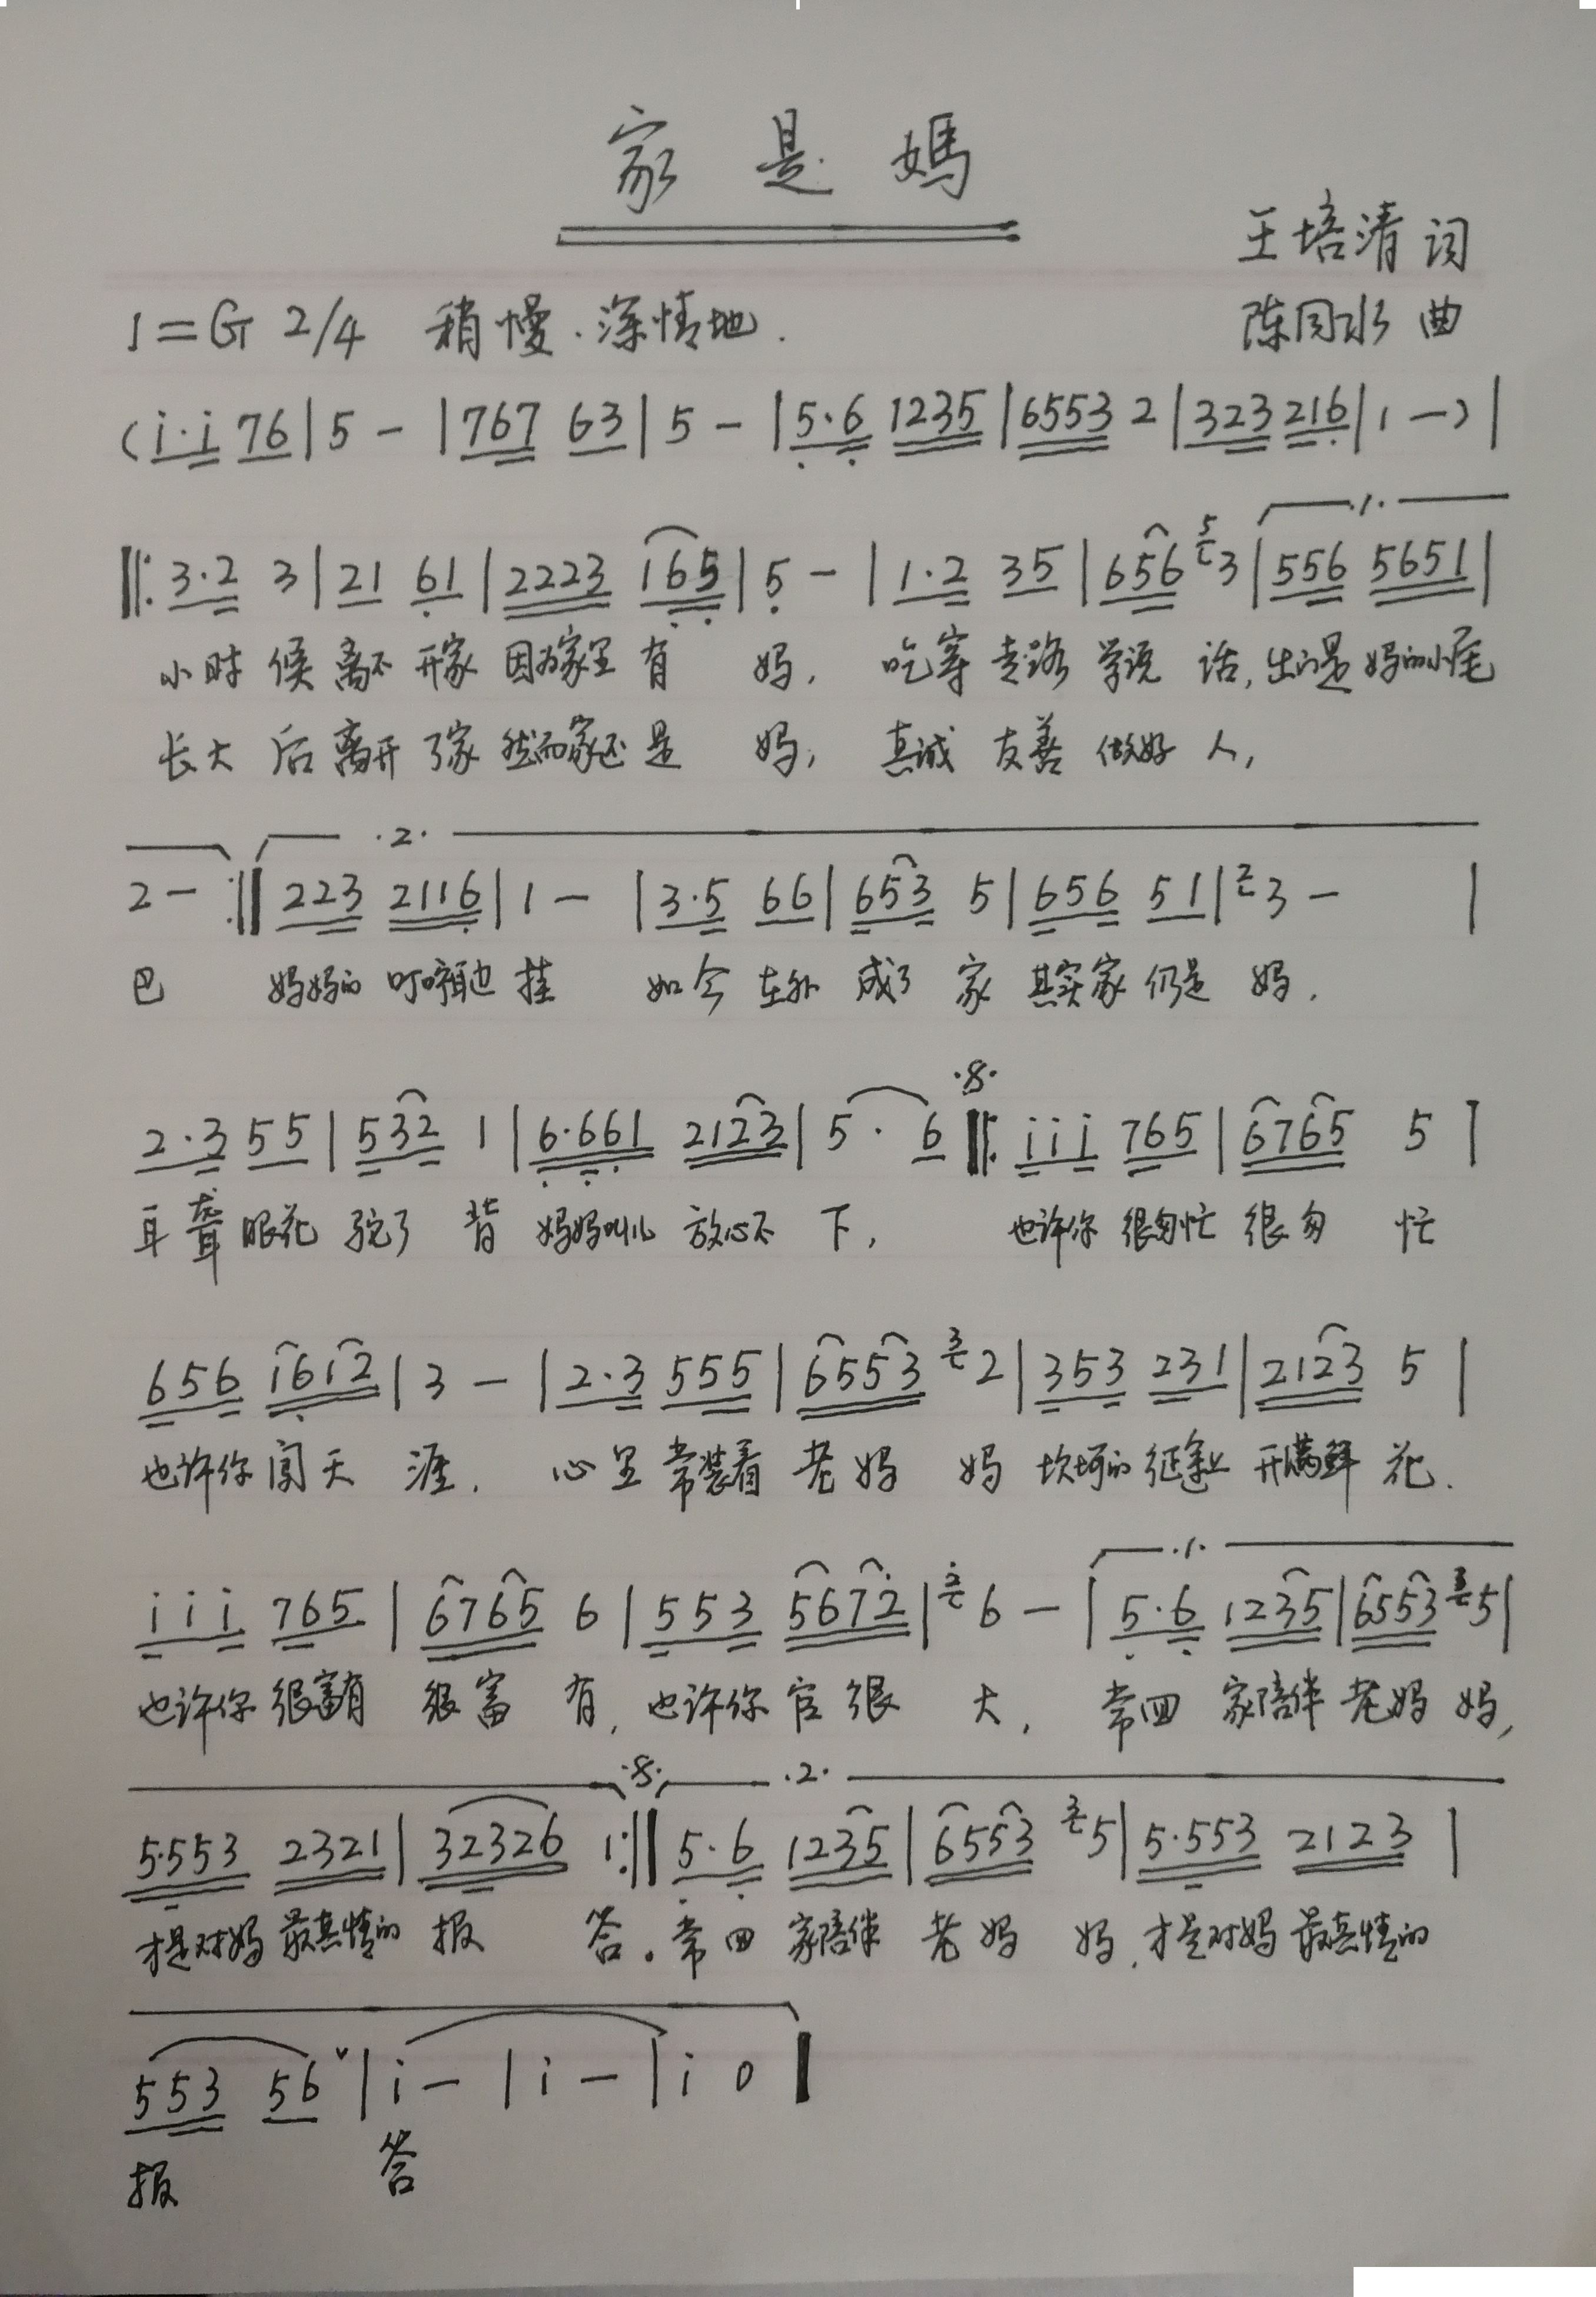 家是媽
王培清 词
1=G 2/4 稍慢.深情地.
陈同水 曲
(i·i 76|5 - |767 63|5 - |5·6 1235|6553 2|323 216|1 -)|
·1·
||:3·2 3|21 61|2223 165|5 - |1·2 35|656 5 3|556 5651|
小时候离不开家因为家里有妈, 吃穿走路学说话,出的是妈的小尾
长大后离开了家然而家还是妈, 真诚友善做好人,
·2·
2 - :||223 2116|1 - |3·5 66|653 5|656 51|2 3 - |
巴 妈妈的叮咛耳边挂 如今在外成了家其实家仍是妈.
·S·
2·3 55|532 1|6·661 2123|5· 6||:iii 765|6765 5|
耳聋眼花驼了背妈妈叫儿放心不下, 也许你很匆忙很匆忙
656 1612|3 - |2·3 555|6553 3 2|353 231|2123 5|
也许你闯天涯. 心里常装着老妈妈坎坷的征途上开满鲜花.
·1·
iii 765|6765 6|553 5672|2 6 - |5·6 1235|6553 3 5|
也许你很富有很富有,也许你官很大, 常回家陪伴老妈妈,
·S· ·2·
5·553 2321|32326 1:||5·6 1235|6553 3 5|5·553 2123|
才是对妈最真情的报答。常回家陪伴老妈妈,才是对妈最真情的
553 56ˇ|i - |i - |i 0|
报 答